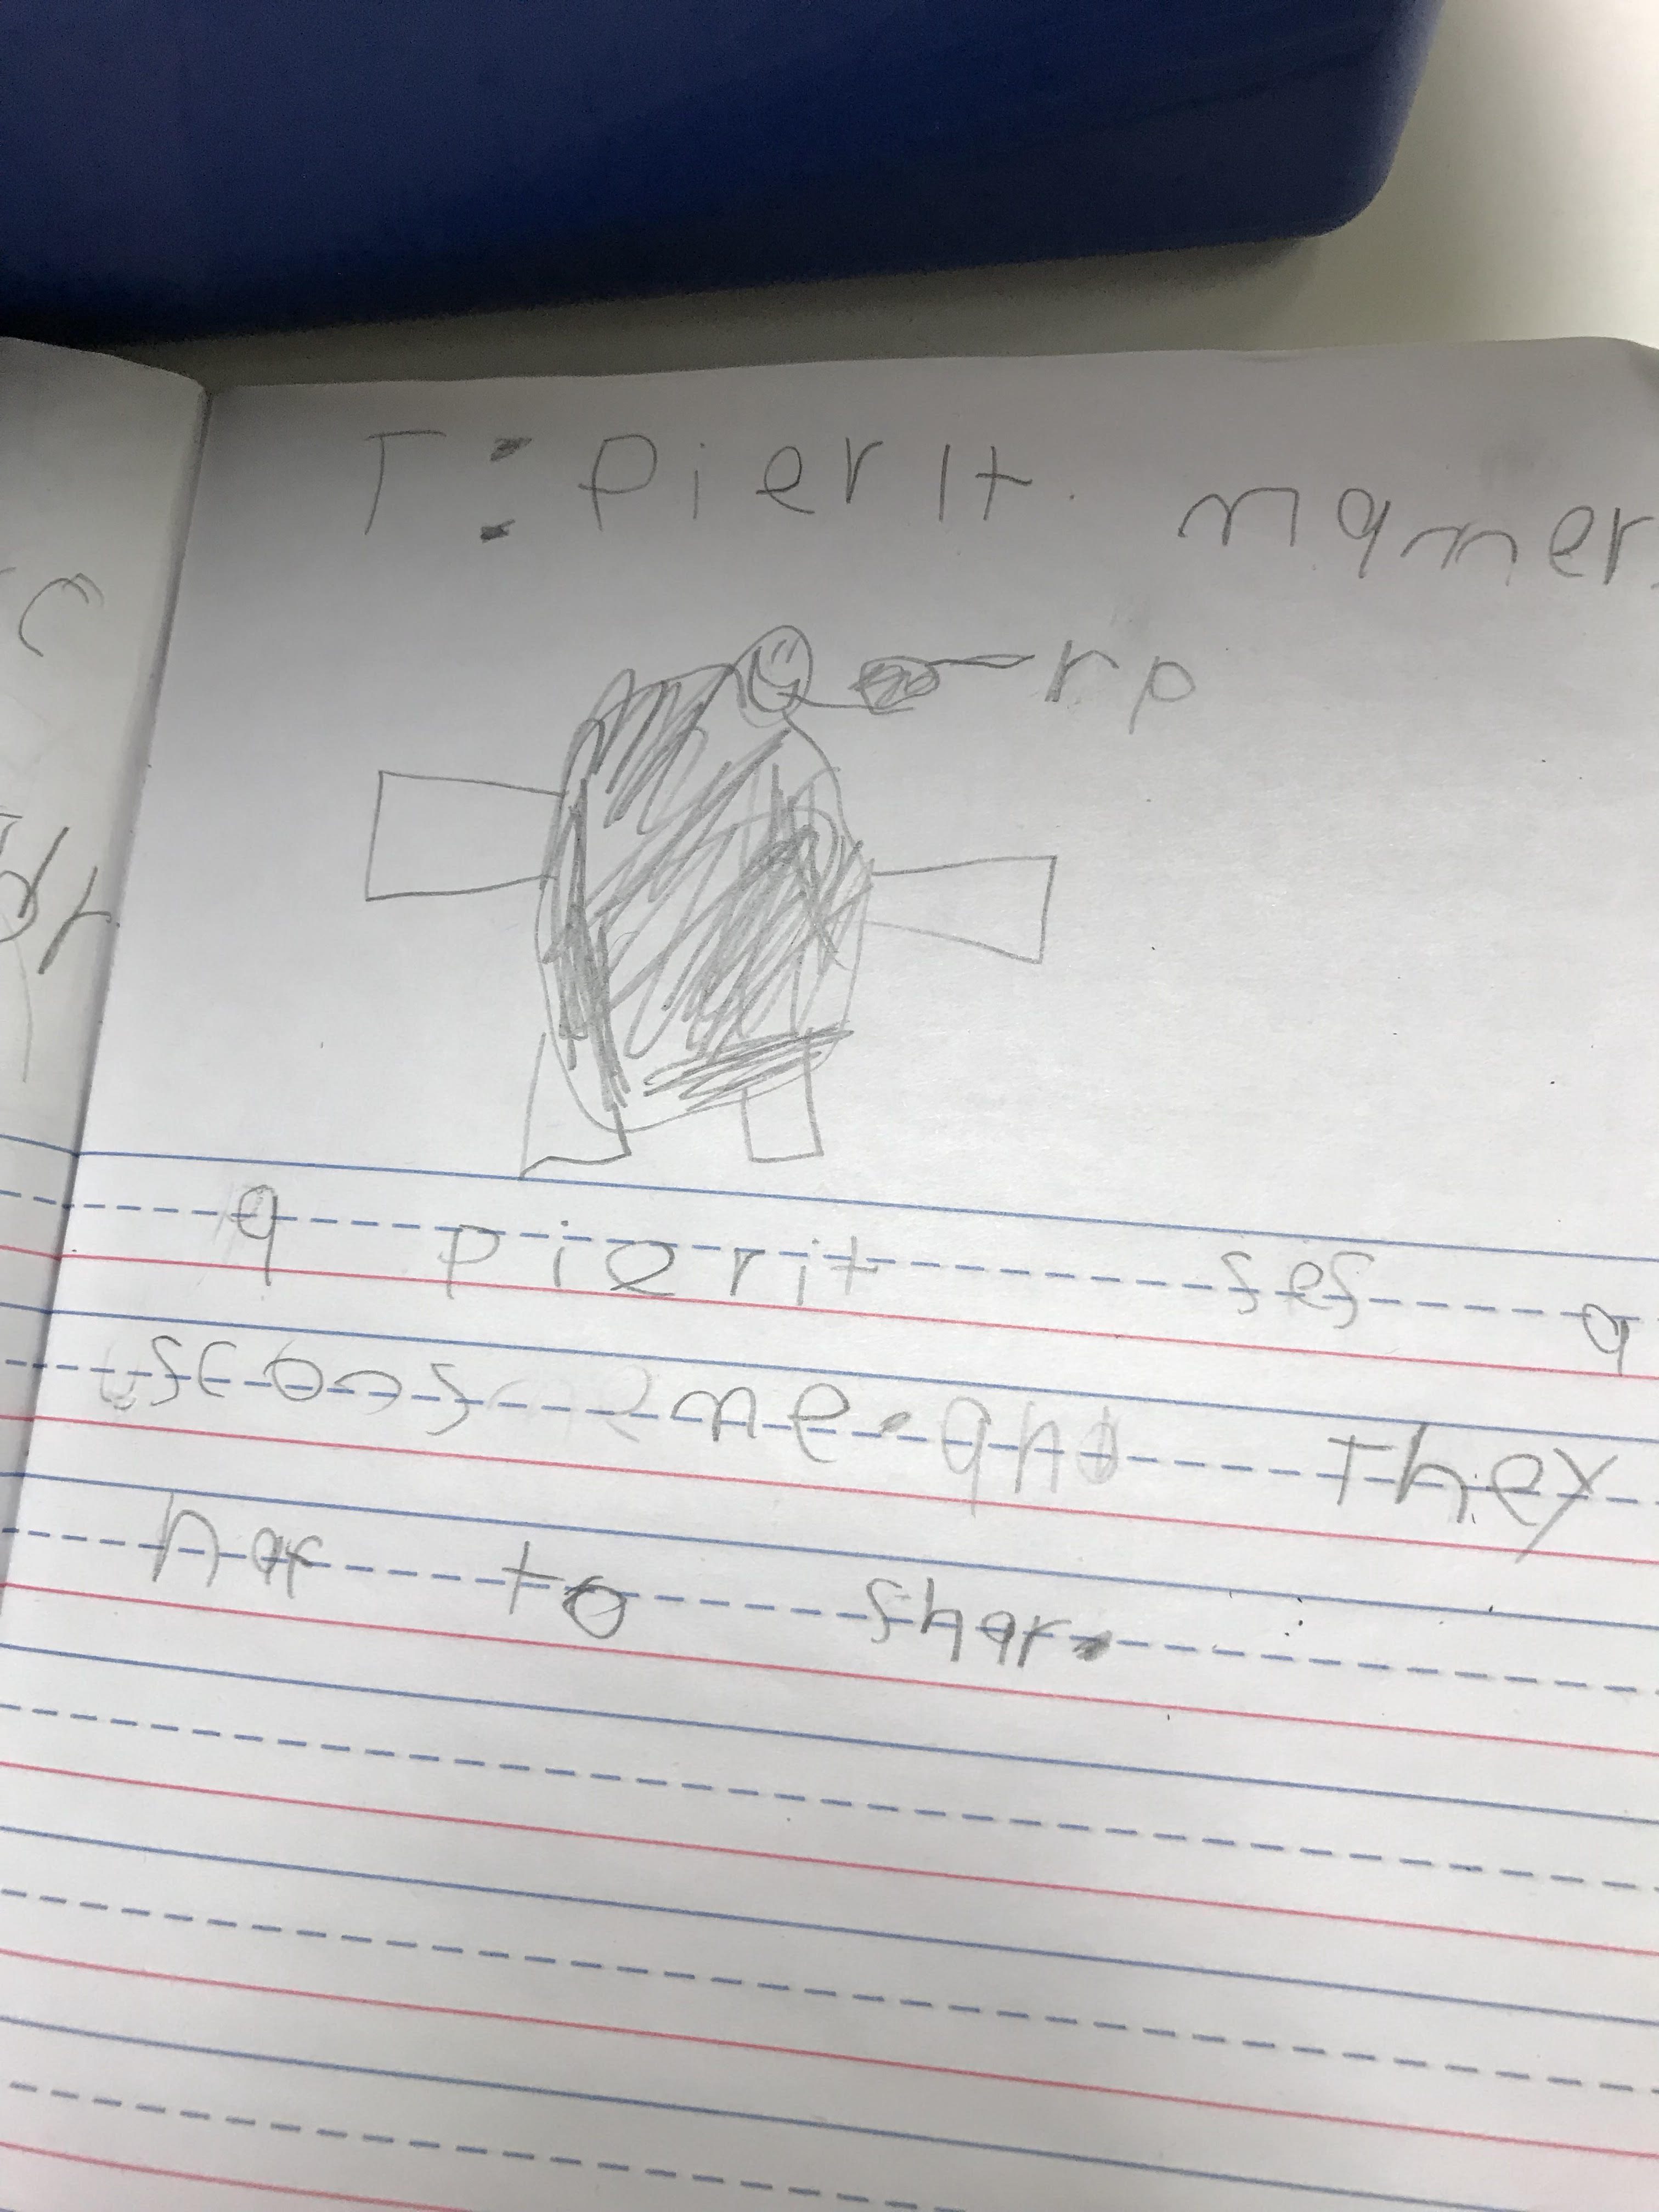 T: Pierit. maner.
rp
a pierit ses a
scons me. and they
har to shar.